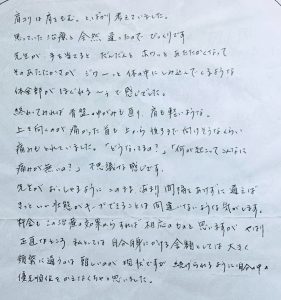 肩コリは肩もむ。とばかり考えていました。
思っていた治療と全然違ったのでびっくりです
先生が手を当てるとだんだんとホワッとあたたかくなって
そのあたたかさがジワーっと体の中にしみ込んでくるような
体全部がほぐれる〜って感じでした。
終わってみれば骨盤のゆがみも直り、肩も軽いような。
上を向くのが痛かった首も上から後ろまで向けそうなくらい
痛みもとれていました。「どうなってるの?」「何が起こってこんなに
痛みが無いの?」不思議な感じです。
先生がおっしゃるようにこのまま、あまり間隔をあけずに通えば
きっといい状態がキープできることは間違いないような気がします。
料金もこの治療の効果からすれば相応のものと思いますが やはり
正直なところ 私としては自分自身にかける金額としては大きく
頻繁に通うのは難しいのが現状ですが 続けられるように自分の中の
優先順位をかえなくちゃと思いました。